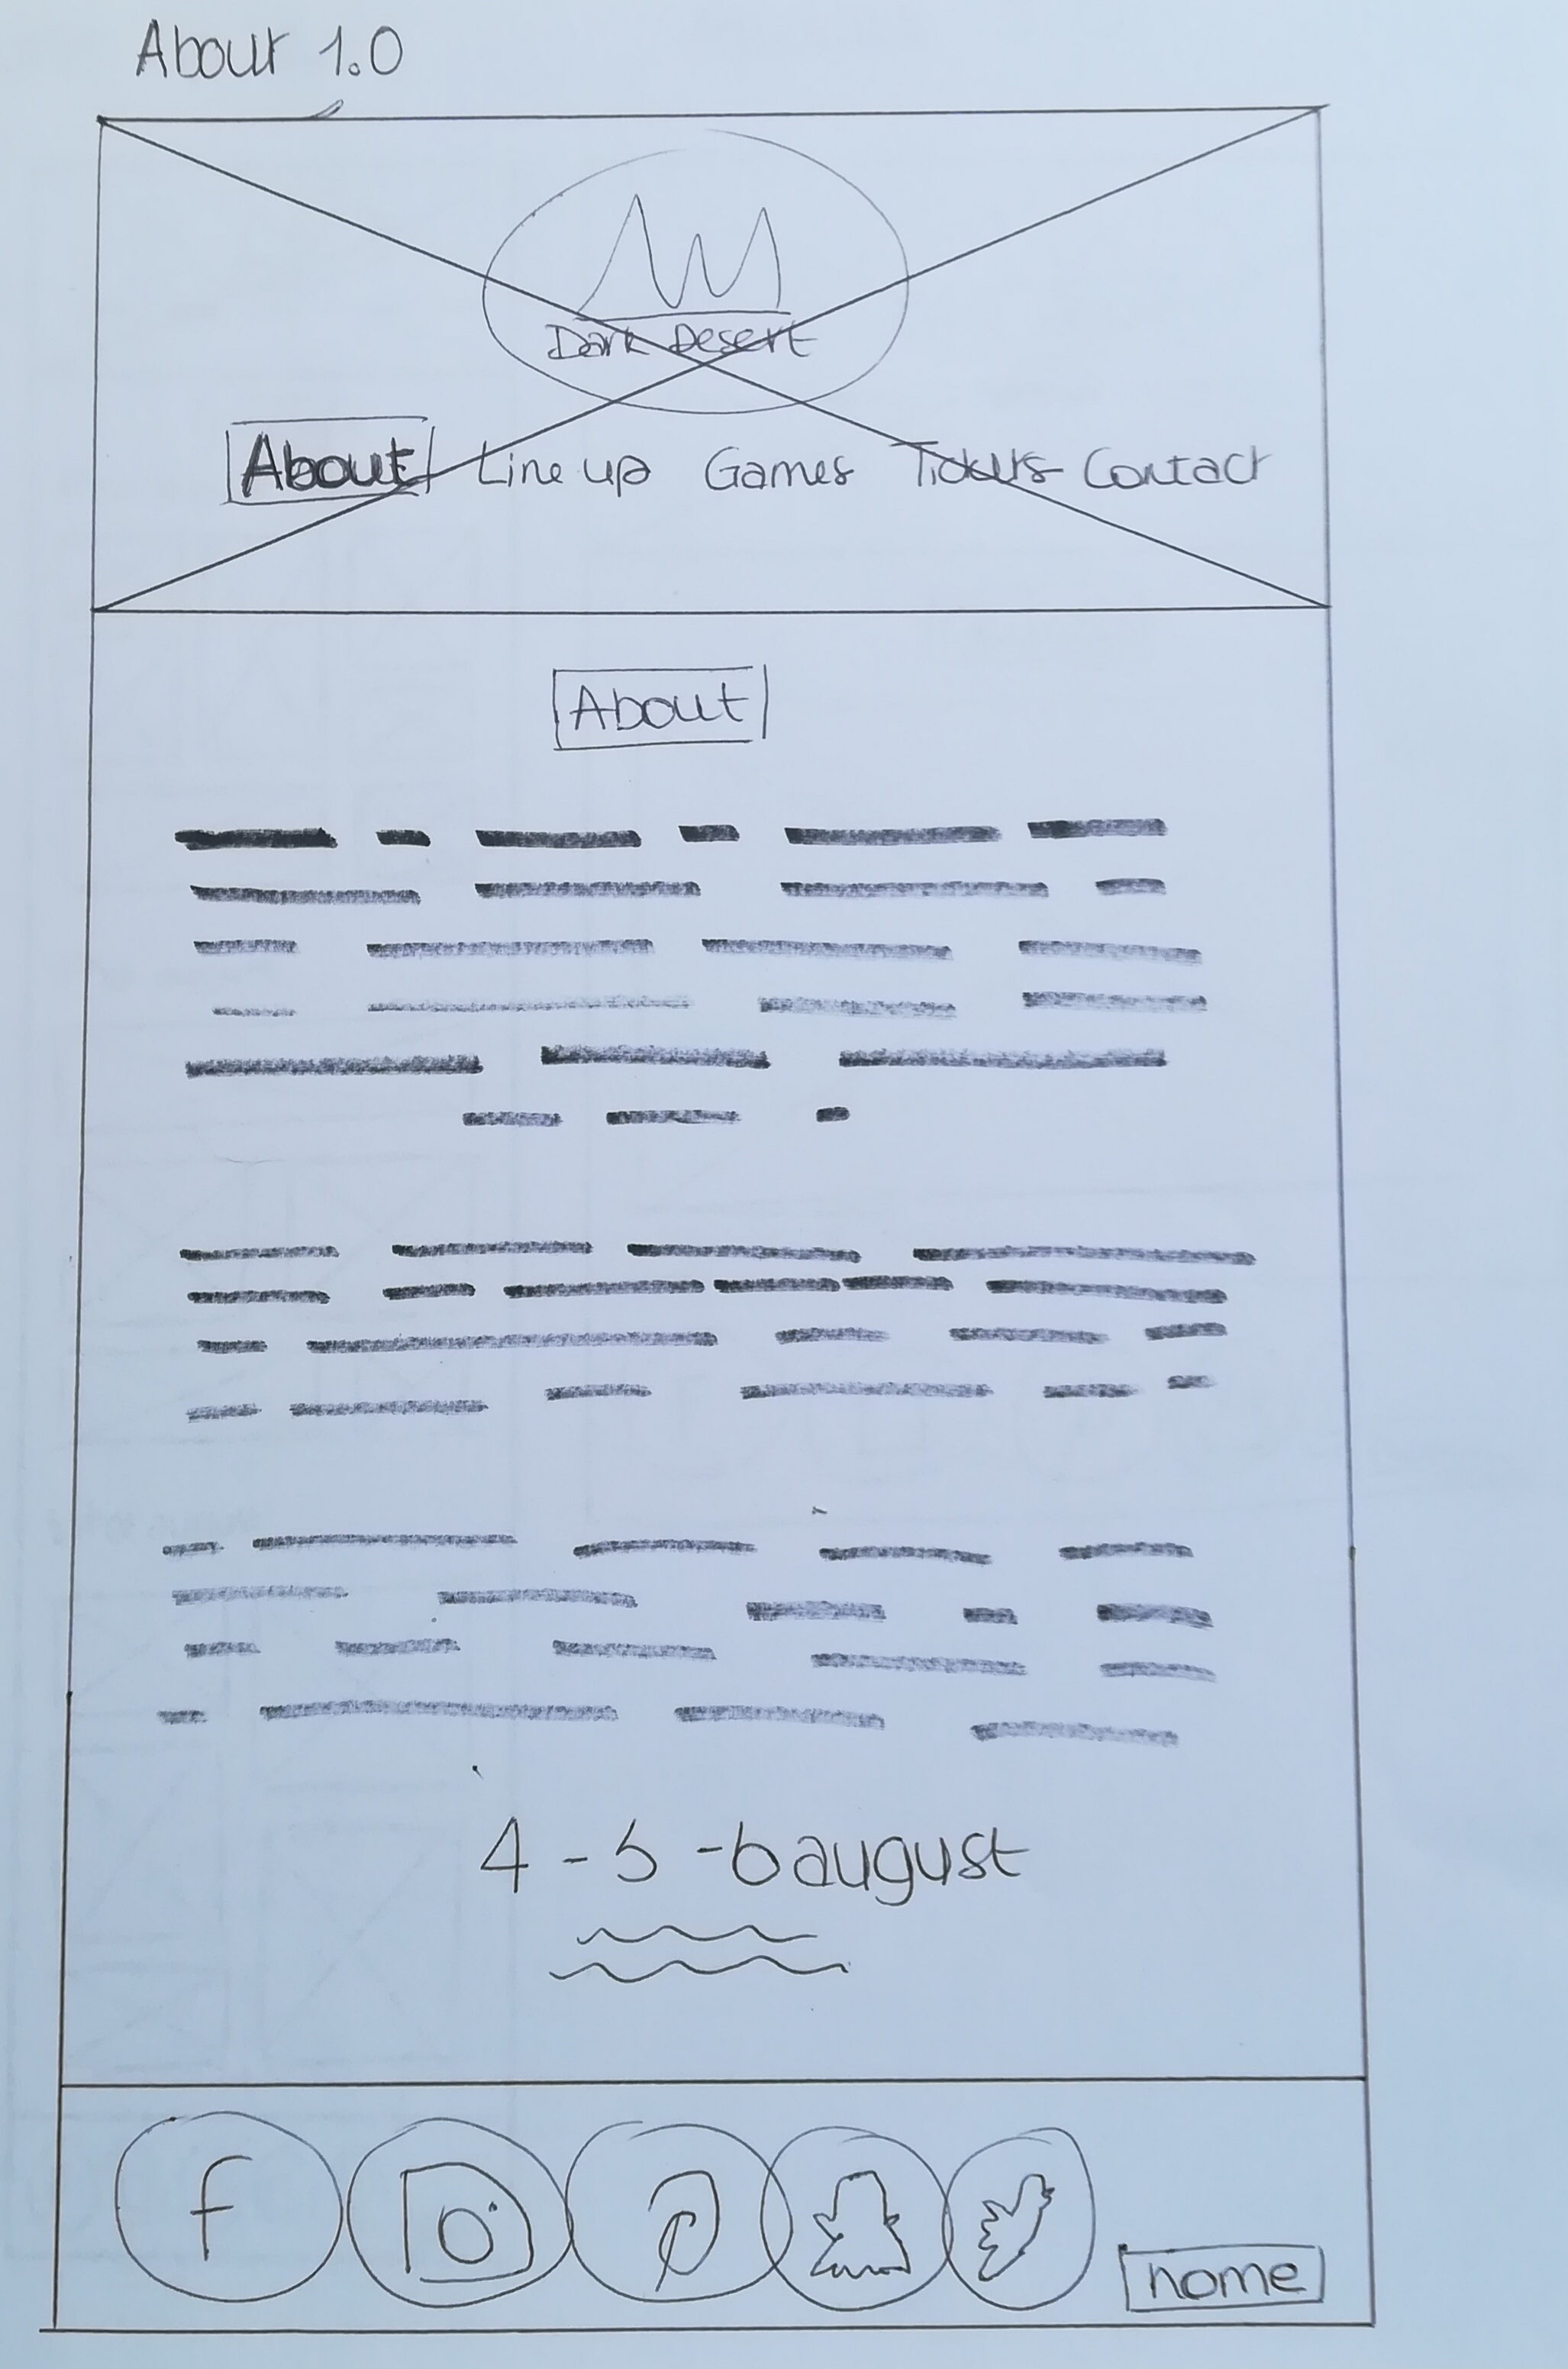 About 1.0
Dark Desert
About Line up Games Tickets Contact
About
4 - 5 - 6 august
f
home